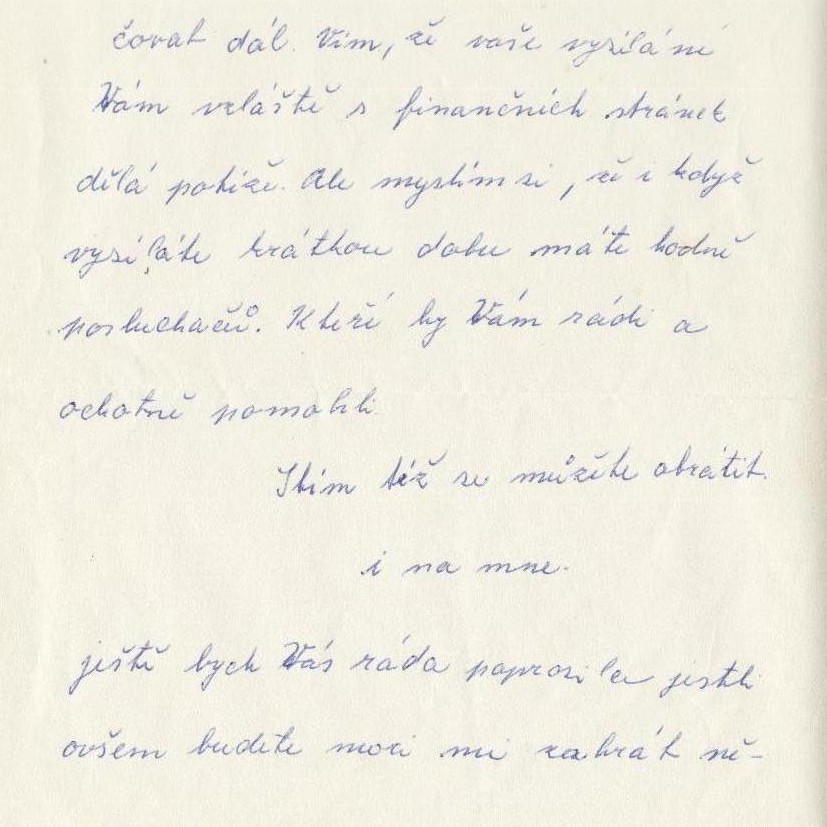 čovat dál. Vím, že vaše vysílání
Vám vzláště s finančních stránek
dělá potíže. Ale myslím si, že i když
vysíláte krátkou dobu máte hodně
posluchačů. Kteří by Vám rádi a
ochotně pomohli.
Stím též se můžete obrátit.
i na mne.
ještě bych Vás ráda poprosila jestli
ovšem budete moci mi zahrát ně-